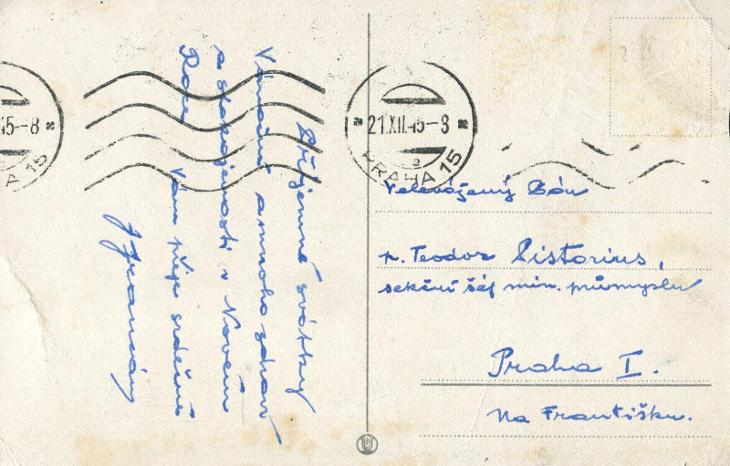 Příjemné svátky
Vánoční a mnoho zdraví
a spokojenosti v Novém
Roce
Vám přeje srdečně
21.XII.45-8
PRAHA 15
45-8
A 15
Velevážený Pán
p. Teodor Pistorius,
sekční šéf min. průmyslu
Praha I.
Na Františku.